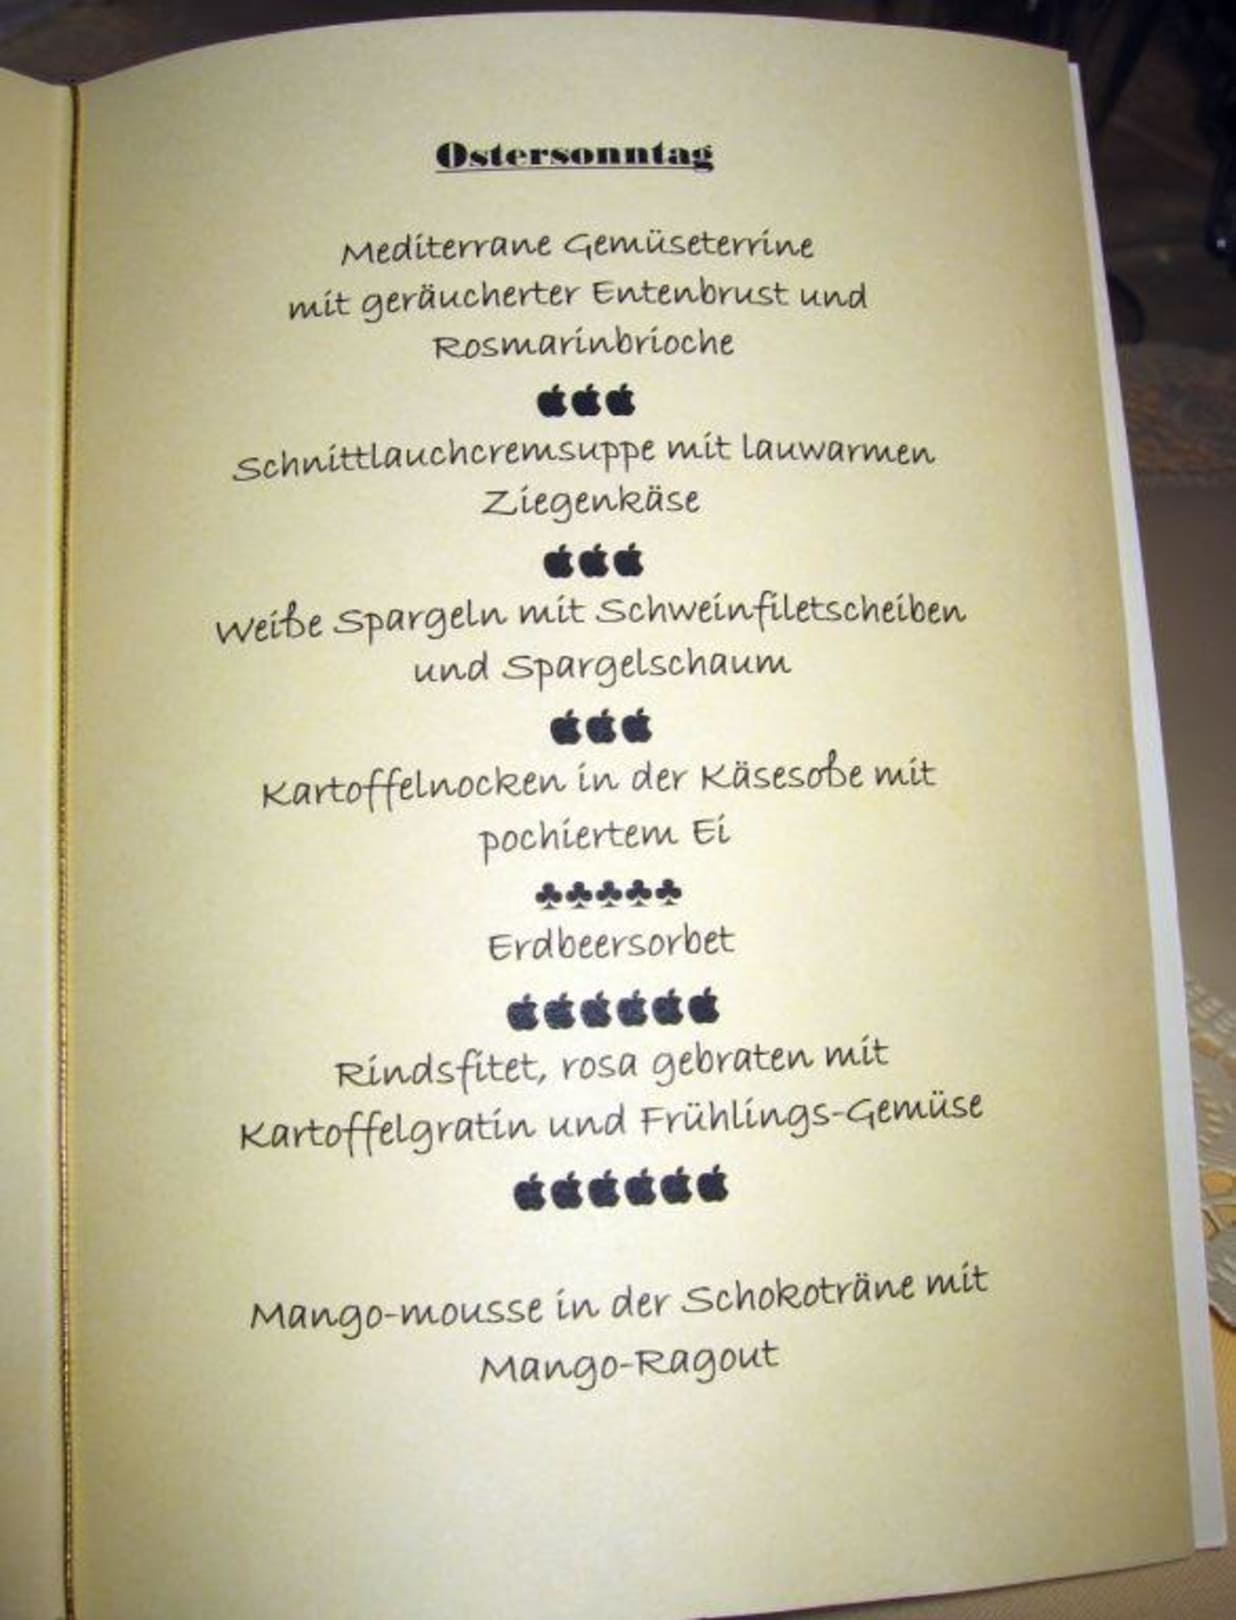 Ostersonntag
Mediterrane Gemüseterrine
mit geräucherter Entenbrust und
Rosmarinbrioche
Schnittlauchcremsuppe mit lauwarmen
Ziegenkäse
Weiße Spargeln mit Schweinfiletscheiben
und Spargelschaum
Kartoffelnocken in der Käsesoße mit
pochiertem Ei
♣♣♣♣♣
Erdbeersorbet
Rindsfitet, rosa gebraten mit
Kartoffelgratin und Frühlings-Gemüse
Mango-mousse in der Schokoträne mit
Mango-Ragout